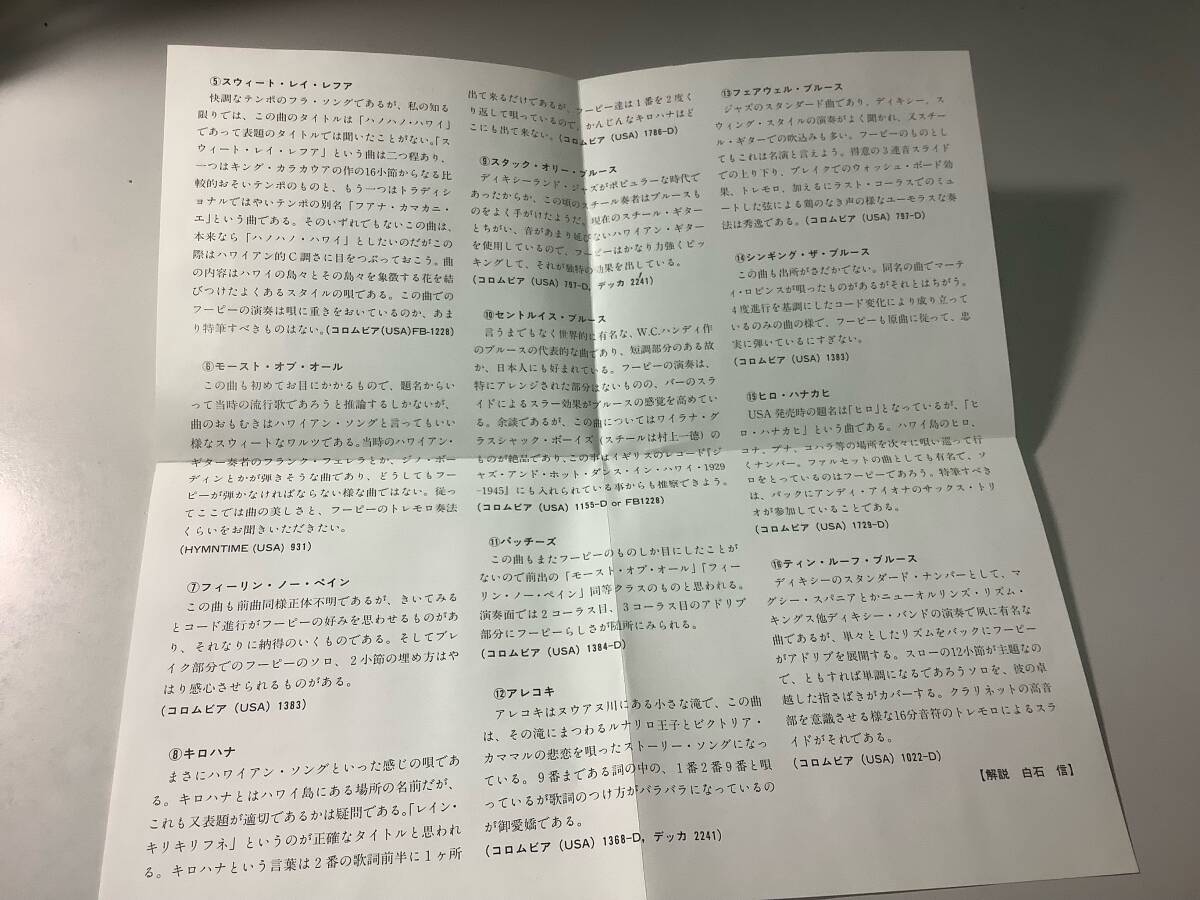 ⑤スウィート・レイ・レフア
快調なテンポのフラ・ソングであるが、私の知る
限りでは、この曲のタイトルは「ハノハノ・ハワイ」
であって表題のタイトルでは聞いたことがない。「ス
ウィート・レイ・レフア」という曲は二つ程あり、
一つはキング・カラカウアの作の16小節からなる比
較的おそいテンポのものと、もう一つはトラディシ
ョナルではやいテンポの別名「フアナ・カマカニ・
エ」という曲である。そのいずれでもないこの曲は、
本来なら「ハノハノ・ハワイ」としたいのだがこの
際はハワイアン的C調さに目をつぶっておこう。曲
の内容はハワイの島々とその島々を象徴する花を結
びつけたよくあるスタイルの唄である。この曲での
フーピーの演奏は唄に重きをおいているのか、あま
り特筆すべきものはない。(コロムビア(USA)FB-1228)
⑥モースト・オブ・オール
この曲も初めてお目にかかるもので、題名からい
って当時の流行歌であろうと推論するしかないが、
曲のおもむきはハワイアン・ソングと言ってもいい
様なスウィートなワルツである。当時のハワイアン・
ギター奏者のフランク・フェレラとか、ジノ・ボー
ディンとかが弾きそうな曲であり、どうしてもフー
ピーが弾かなければならない様な曲ではない。従っ
てここでは曲の美しさと、フーピーのトレモロ奏法
くらいをお聞きいただきたい。
(HYMNTIME (USA) 931)
⑦フィーリン・ノー・ペイン
この曲も前曲同様正体不明であるが、きいてみる
とコード進行がフーピーの好みを思わせるものがあ
り、それなりに納得のいくものである。そしてブレ
イク部分でのフーピーのソロ、2小節の埋め方はや
はり感心させられるものがある。
(コロムビア (USA) 1383)
⑧キロハナ
まさにハワイアン・ソングといった感じの唄であ
る。キロハナとはハワイ島にある場所の名前だが、
これも又表題が適切であるかは疑問である。「レイン・
キリキリフネ」というのが正確なタイトルと思われ
る。キロハナという言葉は2番の歌詞前半に1ヶ所
出て来るだけであるが、フーピー達は1番を2度く
り返して唄っているので、かんじんなキロハナはど
こにも出て来ない。(コロムビア (USA) 1786-D)
⑨スタック・オリー・ブルース
ディキシーランド・ジャズがポピュラーな時代で
あったからか、この頃のスチール奏者はブルースも
のをよく手がけたようだ。現在のスチール・ギター
とちがい、音があまり延びないハワイアン・ギター
を使用しているので、フーピーはかなり力強くピッ
キングして、それが独特の効果を出している。
(コロムビア (USA) 797-D, デッカ 2241)
⑩セントルイス・ブルース
言うまでもなく世界的に有名な、W.C.ハンディ作
のブルースの代表的な曲であり、短調部分のある故
か、日本人にも好まれている。フーピーの演奏は、
特にアレンジされた部分はないものの、バーのスラ
イドによるスラー効果がブルースの感覚を高めてい
る。余談であるが、この曲についてはワイラナ・グ
ラスシャック・ボーイズ (スチールは村上一徳) の
ものが絶品であり、この事はイギリスのレコード『ジ
ャズ・アンド・ホット・ダンス・イン・ハワイ・1929
-1945』にも入れられている事からも推察できよう。
(コロムビア (USA) 1155-D or FB1228)
⑪パッチーズ
この曲もまたフーピーのものしか目にしたことが
ないので前出の「モースト・オブ・オール」「フィー
リン・ノー・ペイン」同等クラスのものと思われる。
演奏面では2コーラス目、3コーラス目のアドリブ
部分にフーピーらしさが随所にみられる。
(コロムビア (USA) 1384-D)
⑫アレコキ
アレコキはヌウアヌ川にある小さな滝で、この曲
は、その滝にまつわるルナリロ王子とビクトリア・
カママルの悲恋を唄ったストーリー・ソングになっ
ている。9番まである詞の中の、1番2番9番と唄
っているが歌詞のつけ方がバラバラになっているの
が御愛嬌である。
(コロムビア (USA) 1368-D, デッカ 2241)
⑬フェアウェル・ブルース
ジャズのスタンダード曲であり、ディキシー、ス
ウィング・スタイルの演奏がよく聞かれ、又スチー
ル・ギターでの吹込みも多い。フーピーのものとし
てもこれは名演と言えよう。得意の3連音スライド
での上り下り、ブレイクでのウォッシュ・ボード効
果、トレモロ、加えるにラスト・コーラスでのミュ
ートした弦による鶏のなき声の様なユーモラスな奏
法は秀逸である。(コロムビア (USA) 797-D)
⑭シンギング・ザ・ブルース
この曲も出所がさだかでない。同名の曲でマーテ
ィ・ロビンスが唄ったものがあるがそれとはちがう。
4度進行を基調にしたコード変化により成り立って
いるのみの曲の様で、フーピーも原曲に従って、忠
実に弾いているにすぎない。
(コロムビア (USA) 1383)
⑮ヒロ・ハナカヒ
USA発売時の題名は「ヒロ」となっているが、「ヒ
ロ・ハナカヒ」という曲である。ハワイ島のヒロ、
コナ、プナ、コハラ等の場所を次々に唄い巡って行
くナンバー。ファルセットの曲としても有名で、ソ
ロをとっているのはフーピーであろう。特筆すべき
は、バックにアンディ・アイオナのサックス・トリ
オが参加していることである。
(コロムビア (USA) 1729-D)
⑯ティン・ルーフ・ブルース
ディキシーのスタンダード・ナンバーとして、マ
グシー・スパニアとかニューオルリンズ・リズム・
キングス他ディキシー・バンドの演奏で夙に有名な
曲であるが、単々としたリズムをバックにフーピー
がアドリブを展開する。スローの12小節が主題なの
で、ともすれば単調になるであろうソロを、彼の卓
越した指さばきがカバーする。クラリネットの高音
部を意識させる様な16分音符のトレモロによるスラ
イドがそれである。
(コロムビア (USA) 1022-D)
【解説 白石 信】